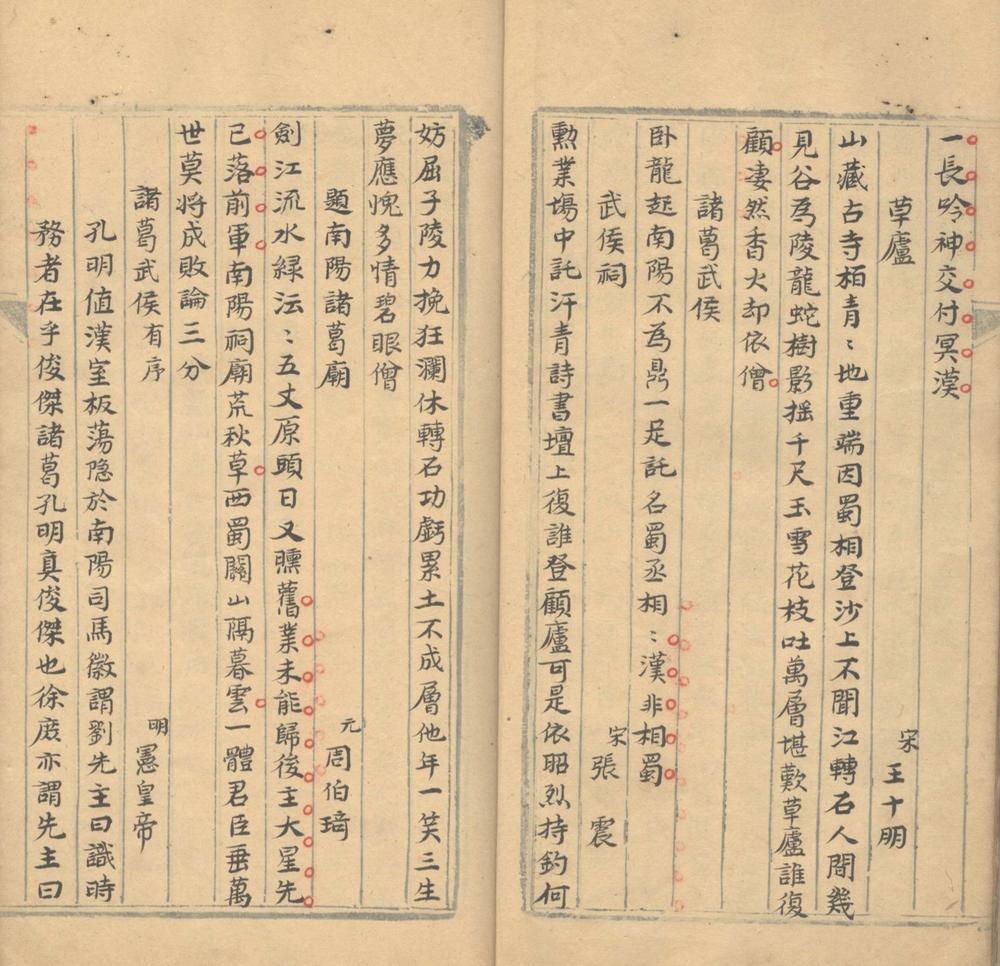 一長吟神交付冥漠
草廬　宋王十明
山藏古寺栢青〻地重端因蜀相登沙上不聞江轉石人間幾
見谷為陵龍蛇樹影摇千尺玉雪花枝吐萬層堪歎草廬誰復
顧凄然香火却依僧
諸葛武侯
卧龍起南陽不為鼎一足託名蜀丞相〻漢非相蜀
武侯祠　宋張震
勲業塲中託汗青詩書壇上復誰登顧廬可是依昭烈持釣何
妨屈子陵力挽狂瀾休轉石功虧累土不成層他年一笑三生
夢應愧多情碧眼僧
題南陽諸葛廟　元周伯琦
劍江流水緑沄〻五丈原頭日又曛舊業未能歸後主大星先
已落前軍南陽祠廟荒秋草西蜀關山隔暮雲一體君臣垂萬
世莫将成敗論三分
諸葛武侯有序　明憲皇帝
孔明值漢室板蕩隐於南陽司馬徽謂劉先主曰識時
務者在乎俊傑諸葛孔明真俊傑也徐庶亦謂先主曰